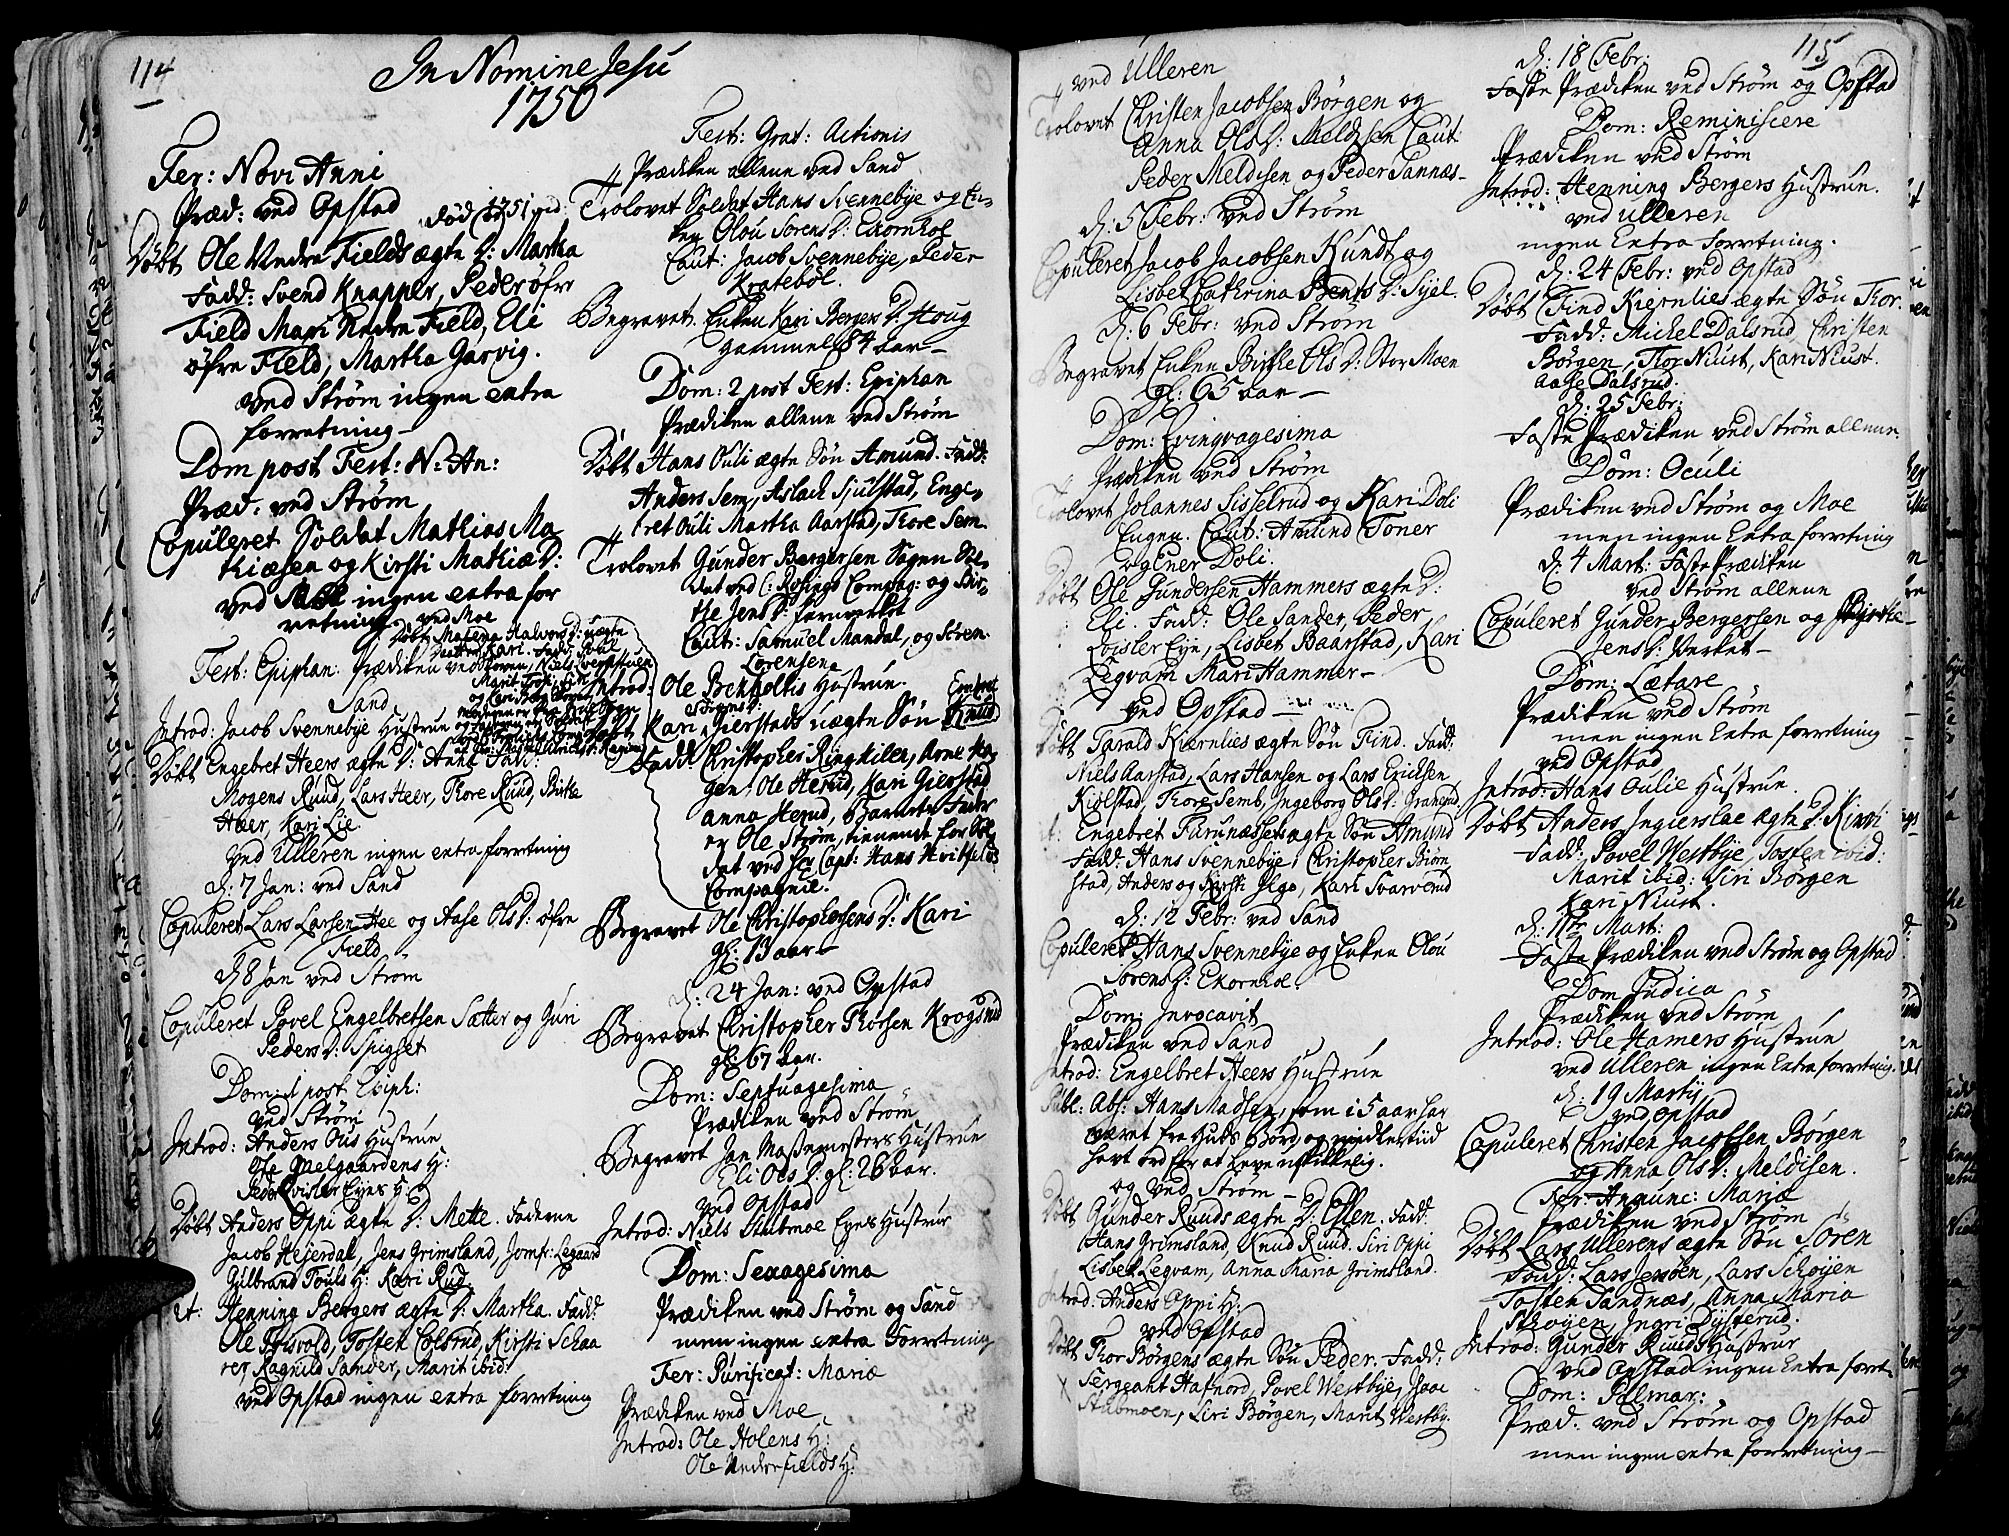 114
In Nomine Jesu
1750
Fer: Novi Anni
Præd: ved Opstad
død 1751
Døbt Ole Nedre Fields ægte D: Martha
Fadd: Svend Knapper, Peder øfre
Field Mari Nedre Field, Eli
øfre Field, Martha Garvig.
ved Strøm ingen extra
forretning
Dom post Fest: N: An:
Præd: ved Strøm
Copuleret Soldat Mathias Ma
thiæsen og Kirsti Mathiæ D:
ved Moe ingen extra for
retning
ved Moe
Døbt Malena Halvors D: uægte
Datter Kari. Fadd: Povel
Fest: Epiphan: Prædiken ved
Sand
Introd: Jacob Svennebye Hustrue
Døbt Engebret Heers ægte D: Anne Fadd:
Mogens Ruud, Lars Heer, Thore Ruud, Birthe
Haer, Kari Lie
ved Ulleren ingen extra forretning
d: 7 Jan: ved Sand
Copuleret Lars Larsen Hee og Aase Ols D: øfre
Field
d 8 Jan ved Strøm
Copuleret Povel Engelbretsen Sætter og Guri
Peders D: Spigset
Dom: 1 post Epiph:
ved Strøm
Introd: Anders Olis Hustrue
Ole Gaelgaardens H:
Peder Qvisler Eyes H:
Døbt Anders Oppi ægte D: Mette. Faderne
Jacob Heyerdal, Jens Grimsland, Jomfr: Legaard
Gulbrand Touls H: Kari Rud
it: Henning Bergers ægte D: Martha. Fadd:
Ole Frisvold, Tosten Colsrud, Kirsti Schaa
rer, Ragnild Sander, Marit ibid:
ved Opstad ingen extra forretning
Fest: Grat: Actionis
Prædiken allene ved Sand
Trolovet Soldat Hans Svennebye og En-
ken Olou Sørens D: Ekornhol
Caut: Jacob Svennebye, Peder
Kratebøl.
Begravet Enken Kari Bergers D: Houg
gammel 84 aar
Dom: 2 post Fest: Epiphan
Prædiken allene ved Strøm
Døbt Hans Ouli ægte Søn Amund. Fadd:
Anders Sem, Aslach Sjulstad, Enge-
bret Ouli Martha Aarstad, Thore Sem
Trolovet Gunder Bergersen Sagen Sol-
dat ved C: Rosings Compag: og Bir-
the Jens D: Jernverket
Caut: Samuel Mandal, og Søren
Lorensen
Introd: Ole Bekholtis Hustrue.
Døbt Kari Gierstads uægte Søn Knud
Fadd: Christopher Ringkilen, Arne
gen, Ole Herud, Kari Gierstad
Anna Herud, Barnets Fader
er Ole Strøm, tienende for Sol
dat ved Hr Capt: Hans Hvitfelds
Compagnie.
Begravet Ole Christophersens D: Kari
gl: 13 aar
d: 24 Jan: ved Opstad
Begravet Christopher Thorsen Krogsrud
gl: 67 aar.
Dom: Septuagesima
Prædiken ved Strøm
Begravet Jan Masmesters Hustrue
Eli Ols D: gl: 26 aar.
ved Opstad
Introd: Niels Stubmoe Eyes Hustrue
Dom: Sexagesima
Prædiken ved Strøm og Sand
men ingen extra forretning
Fer: Purificat: Mariæ
Prædiken ved Moe
Introd: Ole Holens H:
Ole Nedre Fields H:
115
ved Ulleren
Trolovet Christen Jacobsen Børgen og
Anna Ols D: Meldisen Caut:
Peder Meldisen og Peder Sannæs
d: 5 Febr: ved Strøm
Copuleret Jacob Jacobsen Kundt og
Lisbet Cathrina Bents D: Sijel.
d: 6 Febr: ved Strøm
Begravet Enken Birthe Ols D: Stor Moen
gl: 65 aar
Dom: Qvinqvagesima
Prædiken ved Strøm
Trolovet Johannes Sisselrud og Kari Doli
Engen. Caut: Amund Toner
og Ener Doli.
Døbt Ole Gundersen Hammers ægte D:
Eli. Fadd: Ole Sander, Peder
Qvisler Eye, Lisbet Baarstad, Kari
Legvam Mari Hammer
ved Opstad
Døbt Tarald Kiernlies ægte Søn Find. Fadd:
Niels Aarstad, Lars Hansen og Lars Erichsen
Kiølstad, Thore Semb, Ingeborg Ols D: Granerud.
it: Engebret Furunæssets ægte Søn Amund
Fadd: Hans Svennebye, Christopher Biørn
stad, Anders og Kirsti Ilgo, Kari Svarverud
d: 12 Febr: ved Sand
Copuleret Hans Svennebye og Enken Olou
Sørens D: Ekornhol.
Dom: Invocavit
Prædiken ved Sand
Introd: Engelbret Heers Hustrue
Publ: Abs: Hans Madsen, som i 5 aar har
været fra Guds Bord, og midlertiid
havt ord for at leve uskikkelig.
og ved Strøm
Døbt Gunder Ruuds ægte D: Ellen. Fadd:
Hans Grimsland, Knud Ruud. Siri Oppi
Lisbet Legvam, Anna Maria Grimsland.
Introd: Anders Oppi H:
ved Opstad
Døbt Thor Børgens ægte Søn Peder. Fadd:
Sergeant Hafnord, Povel Westbye, Isaac
Stubmoen, Siri Børgen, Marit Westby.
d: 18 Febr:
Faste Prædiken ved Strøm og Opstad
Dom: Reminiscere
Prædiken ved Strøm
Introd: Henning Bergers Hustrue.
ved Ulleren
ingen Extra forretning.
d: 24 Febr: ved Opstad
Døbt Find Kiernlies ægte Søn Thor.
Fadd: Michel Dalsrud, Christen
Børgen, Thor Niust, Kari Niust.
Aase Dalsrud.
d: 25 Febr:
Faste Prædiken ved Strøm allene.
Dom: Oculi
Prædiken ved Strøm og Moe
men ingen Extra forretning
d: 4 Mart: Faste Prædiken
ved Strøm allene
Copuleret Gunder Bergersen og Birthe
Jens D: Verket
Dom: Lætare
Prædiken ved Strøm
men ingen Extra forretning
ved Opstad
Introd: Hans Oulie Hustrue.
Døbt Anders Ingierslae ægte D: Kirsti
Fadd: Povel Westbye, Tosten ibid:
Marit ibid: Siri Børgen
Kari Niust.
d: 11te Mart:
Faste Prædiken ved Strøm og Opstad
Dom Judica
Prædiken ved Strøm
Introd: Ole Hamers Hustrue
ved Ulleren ingen Extra forretning.
d: 19 Martij
ved Opstad
Copuleret Christen Jacobsen Børgen
og Anna Ols D: Meldisen.
Fer: Annunc: Mariæ
Prædiken ved Strøm
Døbt Lars Ullerens ægte Søn Søren
Fadd: Lars Jersøen, Lars Schøyen
Tosten Sandnæs, Anna Maria
Skøyen, Ingri Dysterud.
Introd: Gunder Ruuds Hustrue
ved Opstad ingen Extra forret-
Dom: Palmar:
Præd: ved Strøm og Opstad
men ingen extra forretning